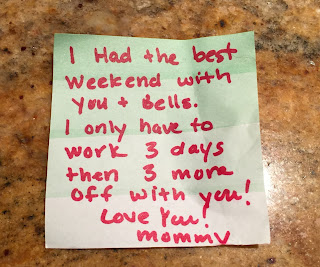 I Had the best
weekend with
you + Bells.
I only have to
work 3 days
then 3 more
off with you!
Love You!
mommy